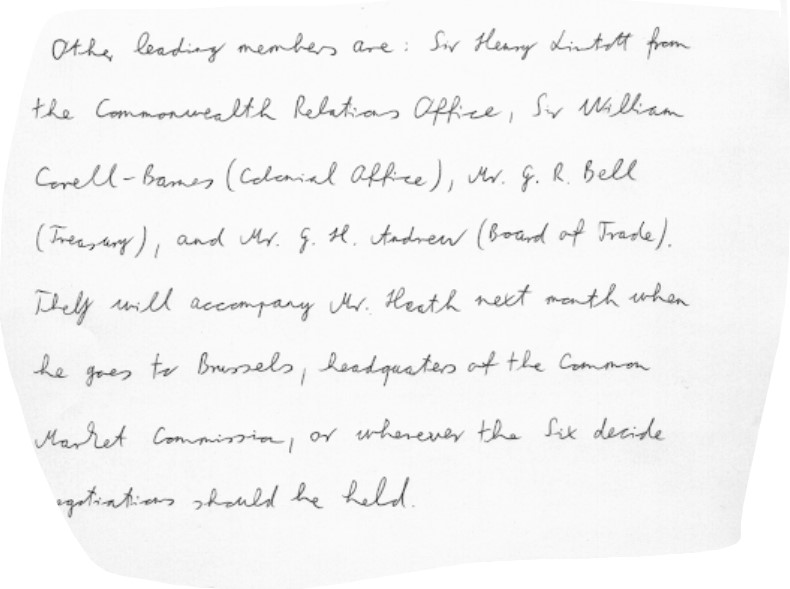 Other leading members are : Sir Henry Lintott from
the Commonwealth Relations Office, Sir William
Corell-Barnes (Colonial Office), Mr. G. R. Bell
(Treasury), and Mr. G. H. Andrew (Board of Trade).
will accompany Mr. Heath next month when
he goes to Brussels, headquaters of the Common
Market Commission, or wherever the Six decide
negotiations should be held.